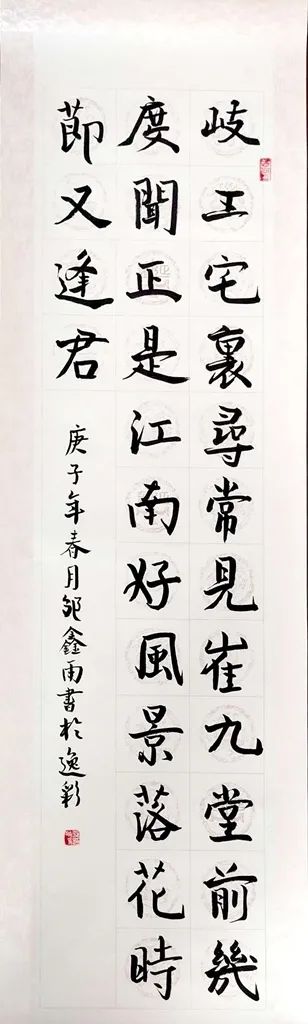 岐王宅裏尋常見崔九堂前幾
度聞正是江南好風景落花時
節又逢君
庚子年春月邹鑫雨書於逸彩